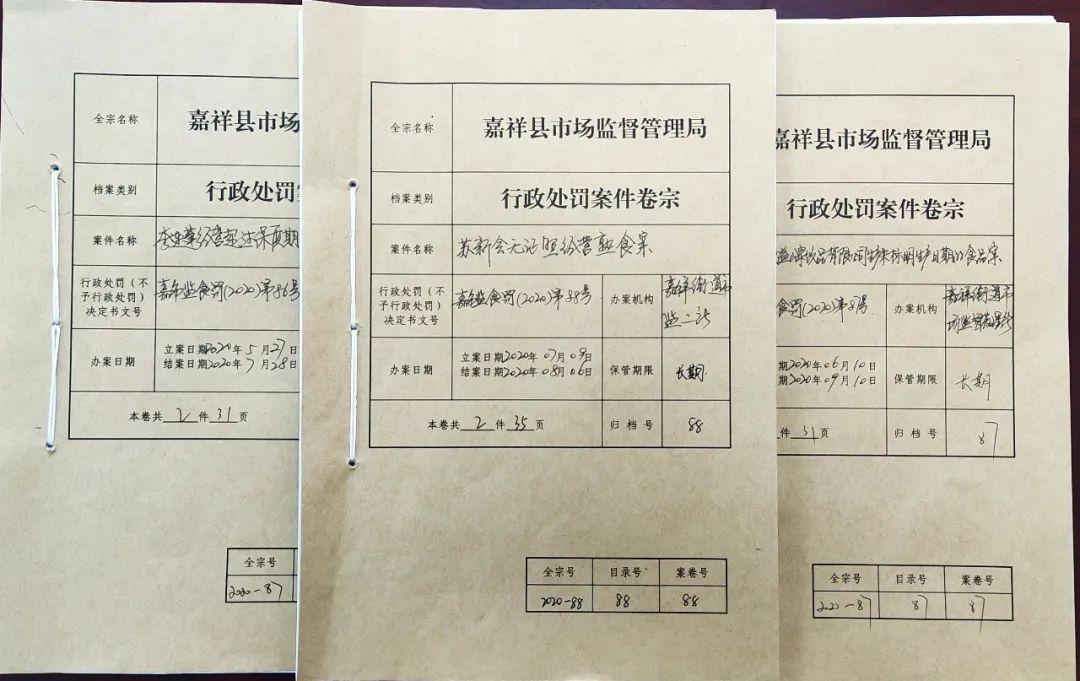 全宗名称
嘉祥县市场
档案类别
行政处罚
案件名称
经营超过保质期
行政处罚(不
予行政处罚)
决定书文号
食罚(2020)第86号
办案日期
立案日期2020年5月27日
结案日期2020年7月28日
本卷共2件31页
全宗号
2020-87
全宗名称
嘉祥县市场监督管理局
档案类别
行政处罚案件卷宗
案件名称
苏新会无证照经营熟食案
行政处罚(不
予行政处罚)
决定书文号
监食罚(2020)第88号
办案机构
嘉祥街道市
监二所
办案日期
立案日期2020年07月09日
结案日期2020年08月06日
保管期限
长期
本卷共2件35页
归档号
88
全宗号 目录号 案卷号
2020-88 88 88
嘉祥县市场监督管理局
行政处罚案件卷宗
饮品有限公司生产未标明生产日期的食品案
食罚(2020)第87号
办案机构
嘉祥街道市
期2020年06月10日
期2020年09月10日
保管期限
长期
件31页
归档号
87
全宗号 目录号 案卷号
2020-87 87 87